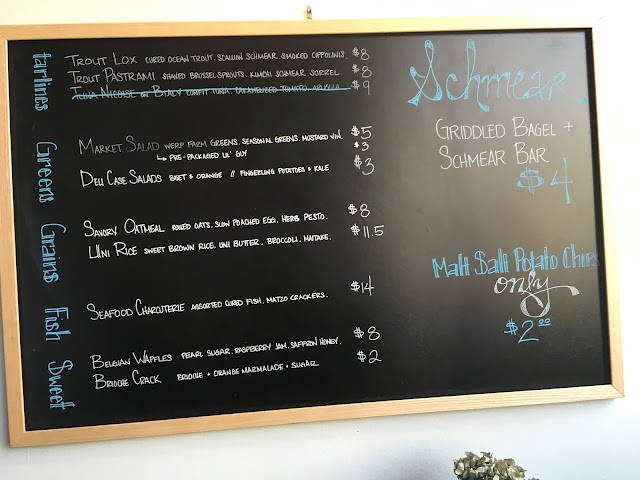 Tartines
Trout Lox cured ocean trout. scallion schmear. smoked cippolinis. $8
Trout Pastrami shaved brussel sprouts. kimchi schmear. sorrel. $8
Tuna Nicoise on Bialy confit tuna. caramelized tomato. arugula $9
Greens
Market Salad werp farm greens. seasonal greens. mustard vin. $5
↳ pre-packaged lil' guy $3
Deli Case Salads beet & orange // fingerling potatoes & kale $3
Grains
Savory Oatmeal rolled oats. slow poached egg. herb pesto. $8
Uni Rice sweet brown rice. uni butter. broccoli. maitake. $11.5
Fish
Seafood Charcuterie assorted cured fish. matzo crackers. $14
Sweet
Belgian Waffles pearl sugar. raspberry jam. saffron honey. $8
Brioche Crack brioche + orange marmalade + sugar $2
Schmear
Griddled Bagel +
Schmear Bar
$4
Malt Salt Potato Chips
only
$2.00